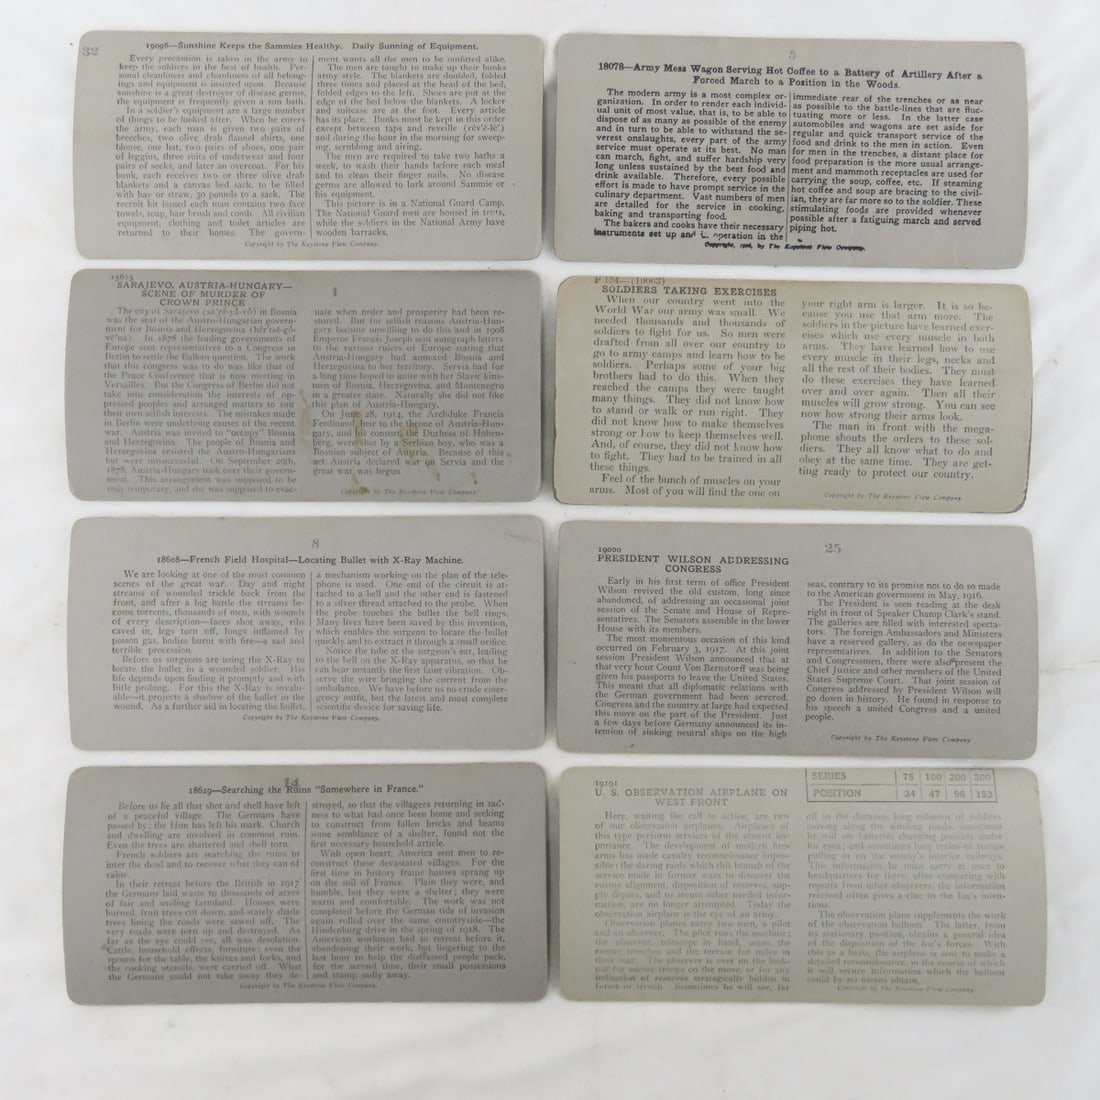 32
19096—Sunshine Keeps the Sammies Healthy. Daily Sunning of Equipment.
Every precaution is taken in the army to
keep the soldiers in the best of health. Per-
sonal cleanliness and cleanliness of all belong-
ings and equipment is insisted upon. Because
sunshine is a great destroyer of disease germs,
the equipment is frequently given a sun bath.
In a soldier's equipment are a large number
of things to be looked after. When he enters
the army, each man is given two pairs of
breeches, two olive drab flannel shirts, one
blouse, one hat, two pairs of shoes, one pair
of leggins, three suits of underwear and four
pairs of socks, and later an overcoat. For his
bunk, each receives two or three olive drab
blankets and a canvas bed sack, to be filled
with hay or straw, 30 pounds to a sack. The
recruit kit issued each man contains two face
towels, soap, hair brush and comb. All civilian
equipment, clothing and toilet articles are
returned to their homes. The govern-
ment wants all the men to be outfitted alike.
The men are taught to make up their bunks
army style. The blankets are doubled, folded
three times and placed at the head of the bed,
folded edges to the left. Shoes are put at the
edge of the bed below the blankets. A locker
and suitcase are at the foot. Every article
has its place. Bunks must be kept in this order
except between taps and reveille (rĕv'ĕ-lē')
and during the hour in the morning for sweep-
ing, scrubbing and airing.
The men are required to take two baths a
week, to wash their hands before each meal
and to clean their finger nails. No disease
germs are allowed to lurk around Sammie or
his equipment.
This picture is in a National Guard Camp.
The National Guard men are housed in tents,
while the soldiers in the National Army have
wooden barracks.
Copyright by The Keystone View Company.
5
18078—Army Mess Wagon Serving Hot Coffee to a Battery of Artillery After a
Forced March to a Position in the Woods.
The modern army is a most complex or-
ganization. In order to render each individ-
ual unit of most value, that is, to be able to
dispose of as many as possible of the enemy
and in turn to be able to withstand the se-
verest onslaughts, every part of the army
service must operate at its best. No man
can march, fight, and suffer hardship very
long unless sustained by the best food and
drink available. Therefore, every possible
effort is made to have prompt service in the
culinary department. Vast numbers of men
are detailed for the service in cooking,
baking and transporting food.
The bakers and cooks have their necessary
instruments set up and operation in the
immediate rear of the trenches or as near
as possible to the battle-lines that are fluc-
tuating more or less. In the latter case
automobiles and wagons are set aside for
regular and quick transport service of the
food and drink to the men in action. Even
for men in the trenches, a distant place for
food preparation is the more usual arrange-
ment and mammoth receptacles are used for
carrying the soup, coffee, etc. If steaming
hot coffee and soup are bracing to the civil-
ian, they are far more so to the soldier. These
stimulating foods are provided whenever
possible after a fatiguing march and served
piping hot.
Copyright, by The Keystone View Company.
15625
1
SARAJEVO, AUSTRIA-HUNGARY—
SCENE OF MURDER OF
CROWN PRINCE
The city of Sarajevo (sa'rä-yä-vō) in Bosnia
was the seat of the Austro-Hungarian govern-
ment for Bosnia and Herzegovina (hĕr'tsĕ-gō-
vē'nä). In 1878 the leading governments of
Europe sent representatives to a Congress in
Berlin to settle the Balkan question. The work
that this congress was to do was like that of
the Peace Conference that is now meeting in
Versailles. But the Congress of Berlin did not
take into consideration the interests of op-
pressed peoples and arranged matters to suit
their own selfish interests. The mistakes made
in Berlin were underlying causes of the recent
war. Austria was invited to "occupy" Bosnia
and Herzegovina. The people of Bosnia and
Herzegovina resisted the Austro-Hungarians
but were unsuccessful. On September 20th,
1878, Austria-Hungary took over their govern-
ment. This arrangement was supposed to be
only temporary, and she was supposed to evac-
uate when order and prosperity had been re-
stored. But for selfish reasons Austria-Hun-
gary became unwilling to do this and in 1908
Emperor Francis Joseph sent autograph letters
to the various rulers of Europe stating that
Austria-Hungary had annexed Bosnia and
Herzegovina to her territory. Servia had for
a long time hoped to unite with her Slavic kins-
men of Bosnia, Herzegovina, and Montenegro
in a greater state. Naturally she did not like
this plan of Austria-Hungary.
On June 28, 1914, the Archduke Francis
Ferdinand, heir to the throne of Austria-Hun-
gary, and his consort, the Duchess of Hohen-
berg, were shot by a Serbian boy, who was a
Bosnian subject of Austria. Because of this
act Austria declared war on Servia and the
great war was begun.
Copyright by The Keystone View Company
P 134—(19063)
SOLDIERS TAKING EXERCISES
When our country went into the
World War our army was small. We
needed thousands and thousands of
soldiers to fight for us. So men were
drafted from all over our country to
go to army camps and learn how to be
soldiers. Perhaps some of your big
brothers had to do this. When they
reached the camps they were taught
many things. They did not know how
to stand or walk or run right. They
did not know how to make themselves
strong or how to keep themselves well.
And, of course, they did not know how
to fight. They had to be trained in all
these things.
Feel of the bunch of muscles on your
arms. Most of you will find the one on
your right arm is larger. It is so be-
cause you use that arm more. The
soldiers in the picture have learned exer-
cises which use every muscle in both
arms. They have learned how to use
every muscle in their legs, necks and
all the rest of their bodies. They must
do these exercises they have learned
over and over again. Then all their
muscles will grow strong. You can see
now how strong their arms look.
The man in front with the mega-
phone shouts the orders to these sol-
diers. They all know what to do and
obey at the same time. They are get-
ting ready to protect our country.
Copyright by The Keystone View Company
8
18608—French Field Hospital—Locating Bullet with X-Ray Machine.
We are looking at one of the most common
scenes of the great war. Day and night
streams of wounded trickle back from the
front, and after a big battle the streams be-
come torrents, thousands of men, with wounds
of every description—faces shot away, ribs
caved in, legs torn off, lungs inflamed by
poison gas, bodies burnt with fire—a sad and
terrible procession.
Before us surgeons are using the X-Ray to
locate the bullet in a wounded soldier. His
life depends upon finding it promptly and with
little probing. For this the X-Ray is invalu-
able—it projects a shadow of the bullet in the
wound. As a further aid in locating the bullet,
a mechanism working on the plan of the tele-
phone is used. One end of the circuit is at-
tached to a bell and the other end is fastened
to a silver thread attached to the probe. When
the probe touches the bullet the bell rings.
Many lives have been saved by this invention,
which enables the surgeon to locate the bullet
quickly and to extract it through a small orifice.
Notice the tube at the surgeon's ear, leading
to the bell on the X-Ray apparatus, so that he
can hear instantly the first faint vibration. Ob-
serve the wire bringing the current from the
ambulance. We have before us no crude emer-
gency outfit, but the latest and most complete
scientific device for saving life.
Copyright by The Keystone View Company.
19000
25
PRESIDENT WILSON ADDRESSING
CONGRESS
Early in his first term of office President
Wilson revived the old custom, long since
abandoned, of addressing an occasional joint
session of the Senate and House of Repre-
sentatives. The Senators assemble in the lower
House with its members.
The most momentous occasion of this kind
occurred on February 3, 1917. At this joint
session President Wilson announced that at
that very hour Count Von Bernstorff was being
given his passports to leave the United States.
This meant that all diplomatic relations with
the German government had been severed.
Congress and the country at large had expected
this move on the part of the President. Just
a few days before Germany announced its in-
tention of sinking neutral ships on the high
seas, contrary to its promise not to do so made
to the American government in May, 1916.
The President is seen reading at the desk
right in front of Speaker Champ Clark's stand.
The galleries are filled with interested specta-
tors. The foreign Ambassadors and Ministers
have a reserved gallery, as do the newspaper
representatives. In addition to the Senators
and Congressmen, there were also present the
Chief Justice and other members of the United
States Supreme Court. That joint session of
Congress addressed by President Wilson will
go down in history. He found in response to
his speech a united Congress and a united
people.
Copyright by The Keystone View Company
14
18629—Searching the Ruins "Somewhere in France."
Before us lie all that shot and shell have left
of a peaceful village. The Germans have
passed by; the Hun has left his mark. Church
and dwelling are involved in common ruin.
Even the trees are shattered and shell torn.
French soldiers are searching the ruins to
inter the dead and to recover what they can of
value.
In their retreat before the British in 1917
the Germans laid waste to thousands of acres
of fair and smiling farmland. Houses were
burned, fruit trees cut down, and stately shade
trees lining the roads were sawed off. The
very roads were torn up and destroyed. As
far as the eye could see, all was desolation.
Cattle, household effects, furniture; even the
spoons for the table, the knives and forks, and
the cooking utensils, were carried off. What
the Germans could not take away they de-
stroyed, so that the villagers returning in sad-
ness to what had once been home and seeking
to construct from fallen bricks and beams
some semblance of a shelter, found not the
first necessary household article.
With open heart, America sent men to re-
construct these devastated villages. For the
first time in history frame houses sprang up
on the soil of France. Plain they were, and
humble, but they were a shelter; they were
warm and comfortable. The work was not
completed before the German tide of invasion
again rolled over the same countryside—the
Hindenburg drive in the spring of 1918. The
American workmen had to retreat before it,
abandoning their work, but lingering to the
last hour to help the distressed people pack,
for the second time, their small possessions
and tramp sadly away.
Copyright by The Keystone View Company.
19191
SERIES 75 100 200 300
POSITION 34 47 96 153
U. S. OBSERVATION AIRPLANE ON
WEST FRONT
Here, waiting the call to action, are two
of our observation airplanes. Airplanes of
this type perform services of the utmost im-
portance. The development of modern fire-
arms has made cavalry reconnaissance impos-
sible; the daring raids which this branch of the
service made in former wars to discover the
enemy alignment, disposition of reserves, sup-
ply depots, and to secure other needed infor-
mation, are no longer attempted. Today the
observation airplane is the eye of an army.
Observation planes carry two men, a pilot
and an observer. The pilot runs the machine;
the observer, telescope in hand, scans the
enemy trenches and the terrain for miles in
their rear. The observer is ever on the look-
out for enemy troops on the move, or for any
indication of reserves strategically hidden in
forest or trench. Sometimes he will see, far
off in the distance, long columns of soldiers
moving along the winding roads, sometimes
he will see batteries changing position under
his eyes; and sometimes long trains of troops
pulling in on the enemy's interior railways.
This information he must carry at once to
headquarters for there, after comparing with
reports from other observers, the information
received often gives a clue to the foe's inten-
tions.
The observation plane supplements the work
of the observation balloon. The latter, from
its stationary position, obtains a general idea
of the disposition of the foe's forces. With
this as a basis, the airplane is sent to make a
detailed reconnaissance, in the course of which
it will secure information which the balloon
could by no means obtain.
Copyright by The Keystone View Company